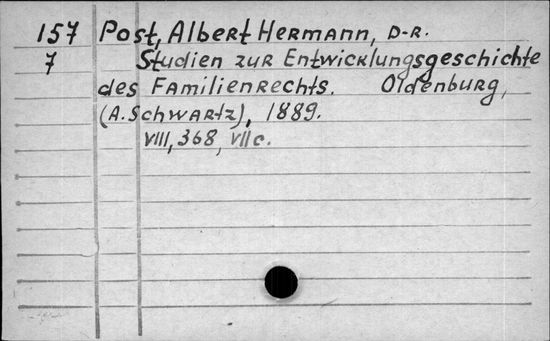 157 Post, Albert Hermann, D-r.
7 Studien zur Entwicklungsgeschichte
des Familienrechts. Oldenburg,
(A. Schwartz), 1889.
VIII, 368, VII c.